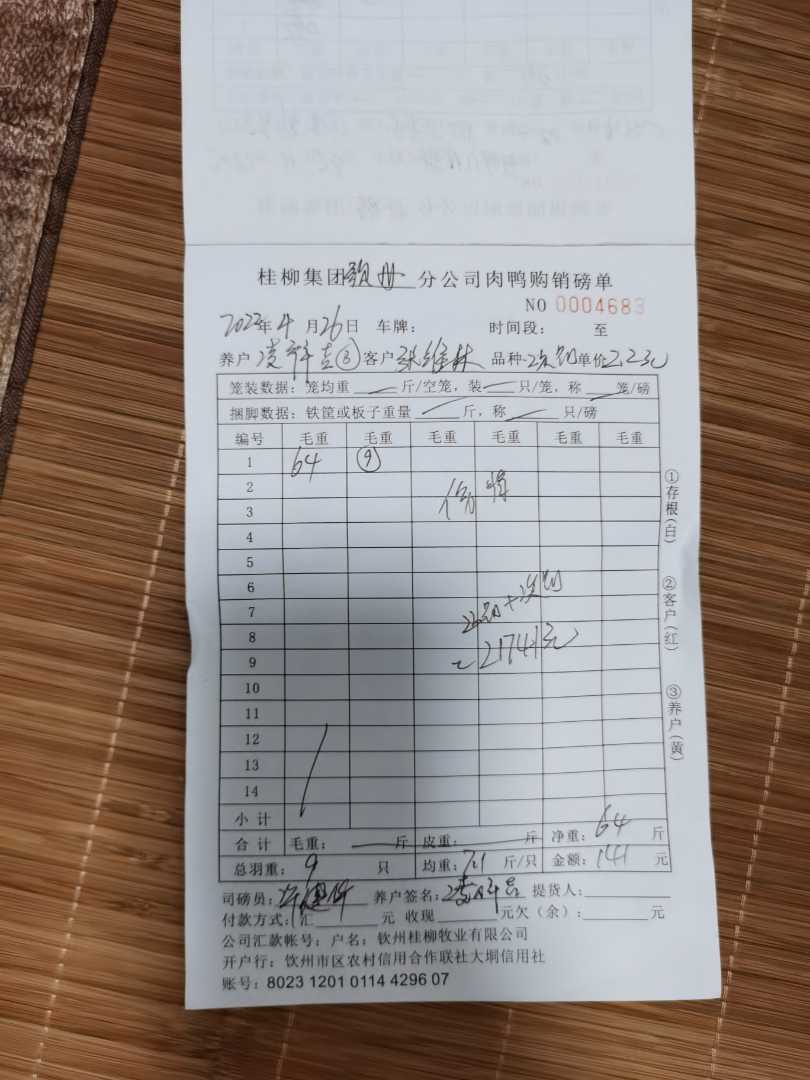 桂柳集团钦州分公司肉鸭购销磅单
NO 0004683
2022年4月26日 车牌： 时间段： 至
养户 凌 吉③ 客户 张维林 品种 单价2.2元
笼装数据：笼均重 斤/空笼，装 只/笼，称 笼/磅
捆脚数据：铁筐或板子重量 斤，称 只/磅
编号 毛重 毛重 毛重 毛重 毛重 毛重
1 64 ⑨
2
3
4
5
6
7
8
9 21741元
10
11
12
13
14
小计
合计 毛重： 斤 皮重： 斤 净重：64 斤
总羽重：9 只 均重：7.1 斤/只 金额：141 元
司磅员： 养户签名： 提货人：
付款方式：汇 元 收现 元欠（余）： 元
公司汇款帐号：户名：钦州桂柳牧业有限公司
开户行：钦州市区农村信用合作联社大垌信用社
账号：8023 1201 0114 4296 07
①存根（白）
②客户（红）
③养户（黄）